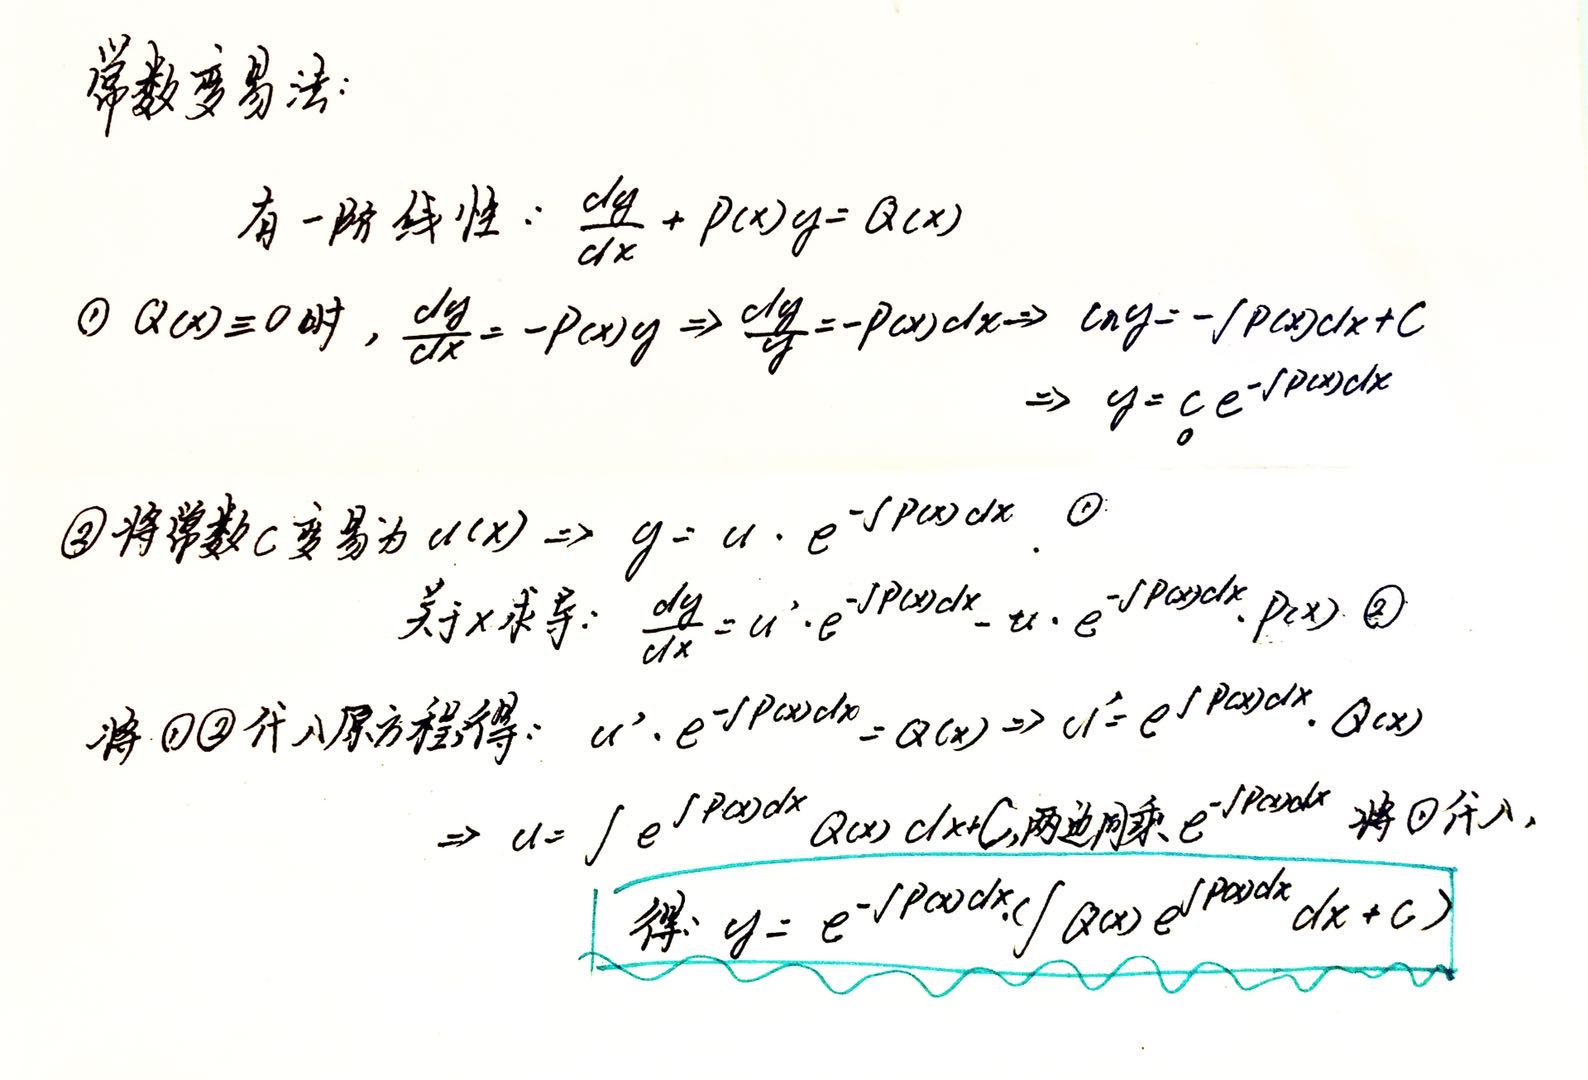 常数变易法:
有一阶线性: dy/dx + P(x)y = Q(x)
① Q(x)≡0时, dy/dx = -P(x)y ⇒ dy/y = -P(x)dx ⇒ lny = -∫P(x)dx+C
⇒ y = C e^{-∫P(x)dx}
②将常数C变易为u(x) ⇒ y = u · e^{-∫P(x)dx}. ①
关于x求导: dy/dx = u'·e^{-∫P(x)dx} - u·e^{-∫P(x)dx}·P(x) ②
将①②代入原方程,得: u'·e^{-∫P(x)dx} = Q(x) ⇒ u' = e^{∫P(x)dx}·Q(x)
⇒ u = ∫e^{∫P(x)dx} Q(x)dx+C,两边同乘e^{-∫P(x)dx} 将①代入,
得: y = e^{-∫P(x)dx}·(∫Q(x)e^{∫P(x)dx}dx + C)